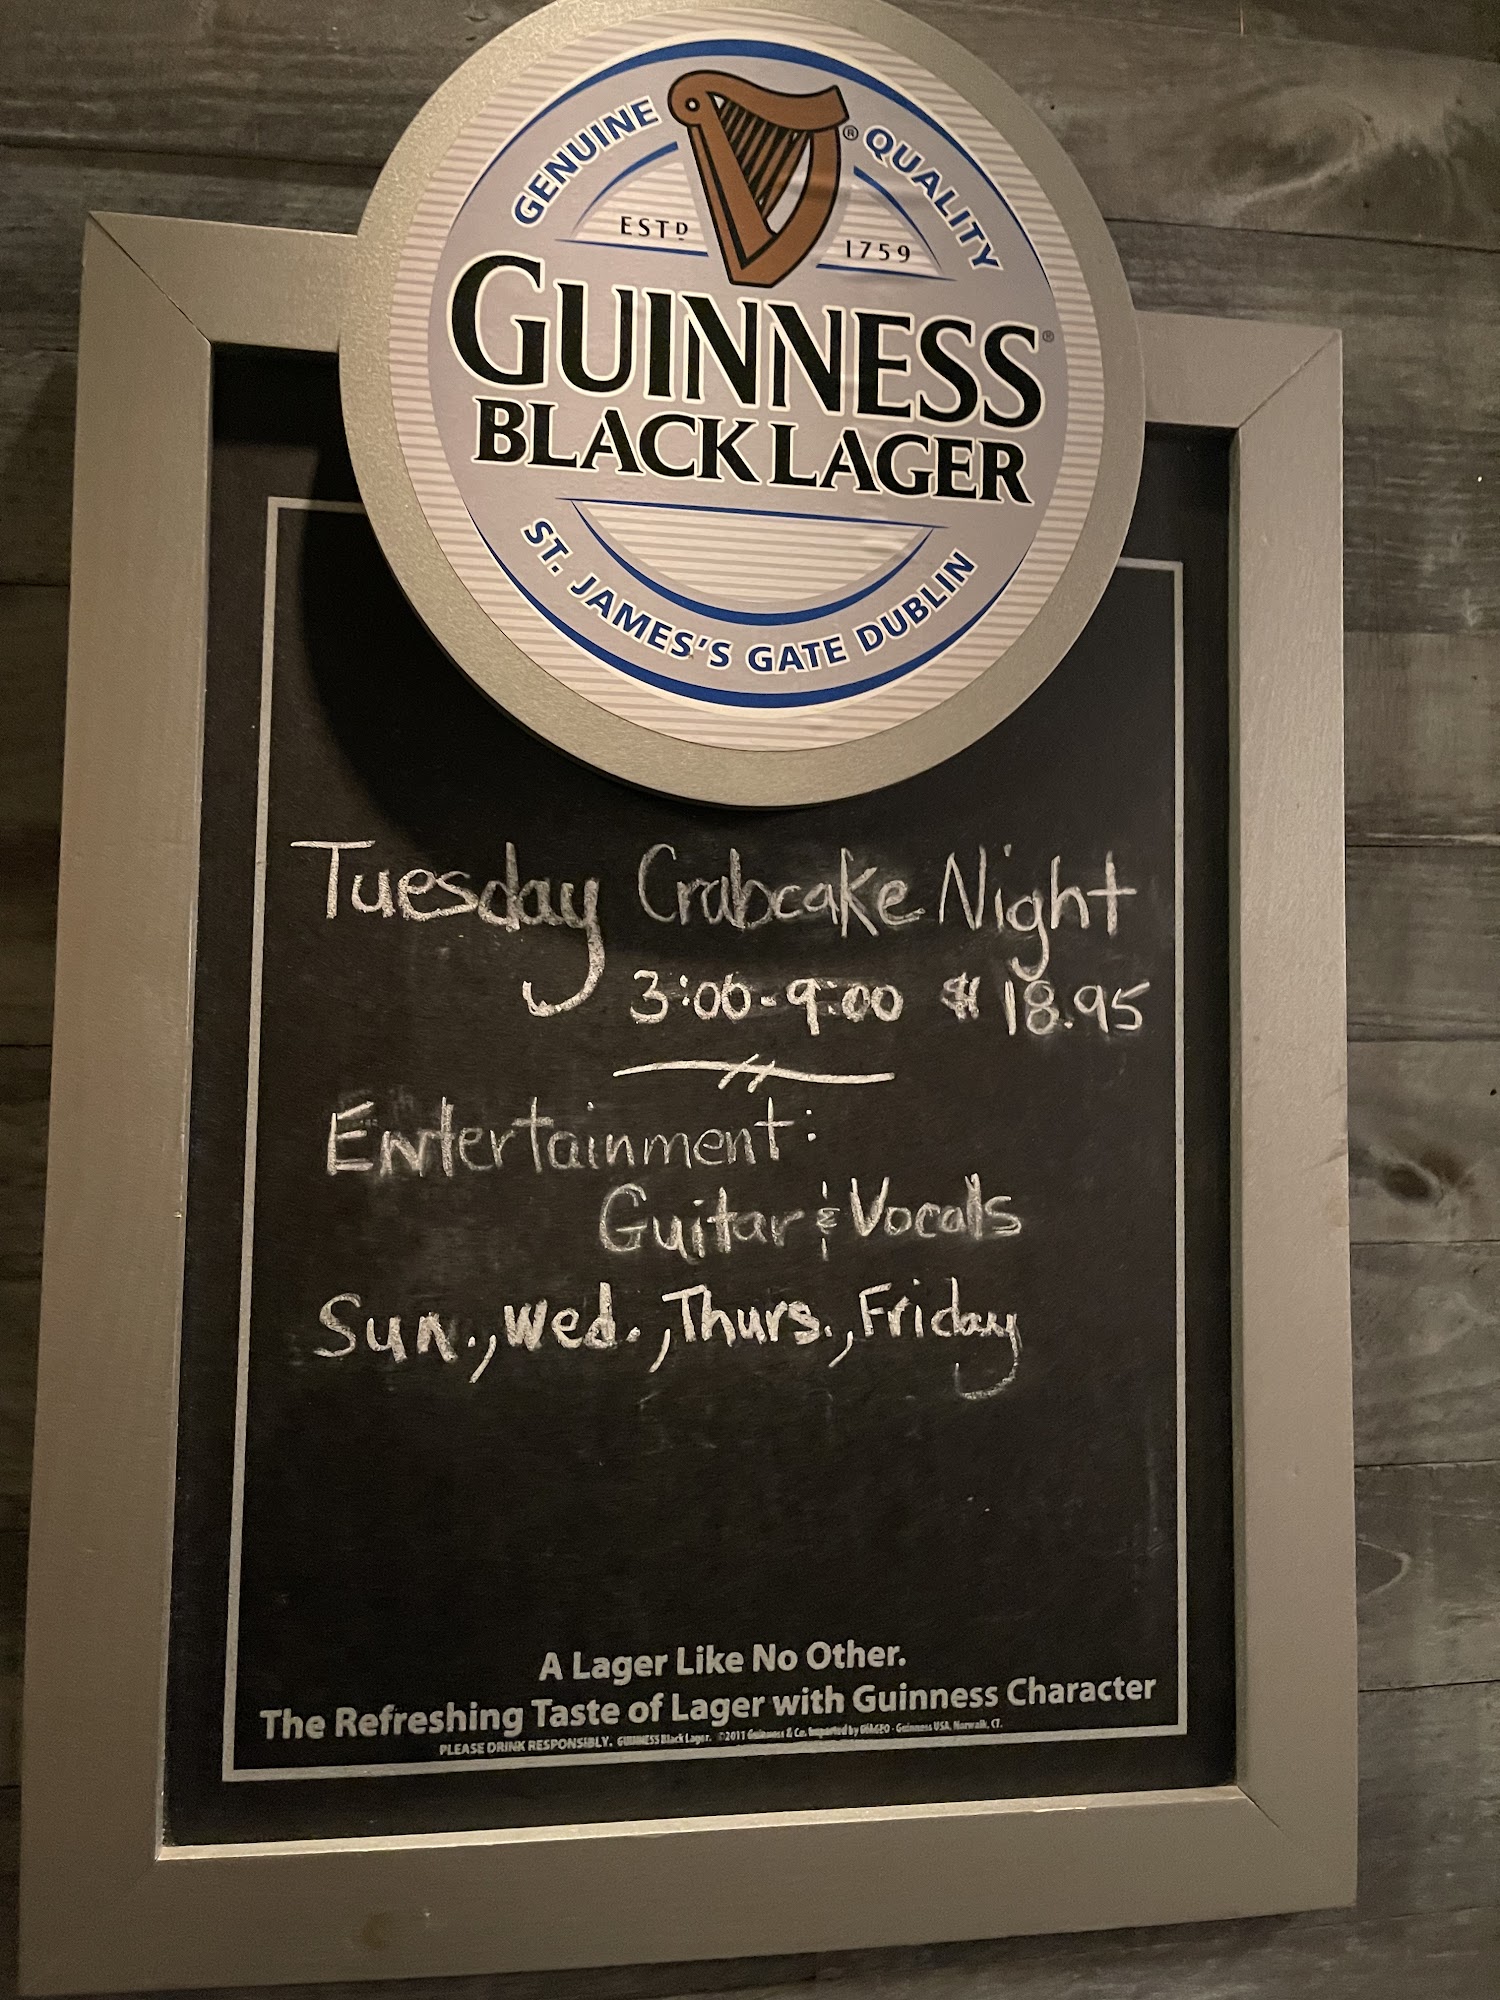 GENUINE QUALITY
ESTD 1759
GUINNESS®
BLACK LAGER
ST. JAMES'S GATE DUBLIN
Tuesday Crabcake Night
3:00-9:00 $18.95
Entertainment:
Guitar & Vocals
Sun., Wed., Thurs., Friday
A Lager Like No Other.
The Refreshing Taste of Lager with Guinness Character
PLEASE DRINK RESPONSIBLY. GUINNESS Black Lager. ©2011 Guinness & Co. Imported by DIAGEO - Guinness USA, Norwalk, CT.